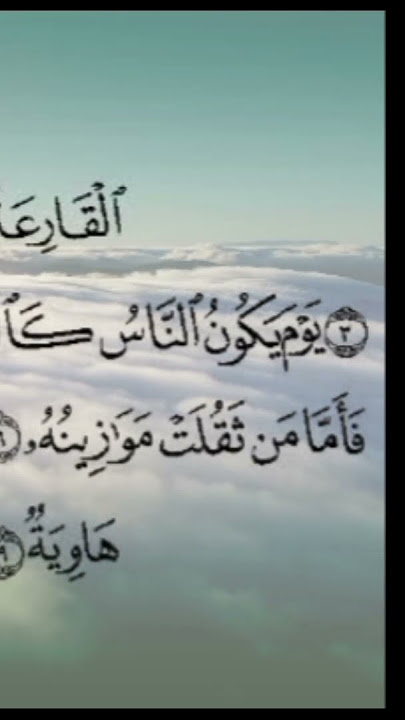 ٱلْقَارِعَ
٣ يَوْمَ يَكُونُ ٱلنَّاسُ كَٱ
فَأَمَّا مَن ثَقُلَتْ مَوَٰزِينُهُۥ ٦
هَاوِيَةٌ ٩